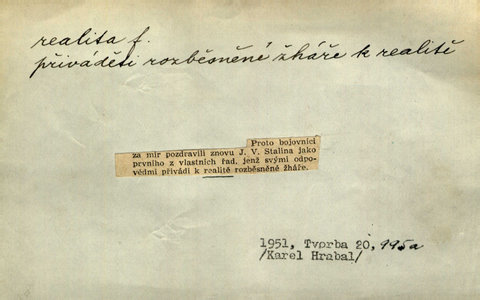 realita f.
přiváděti rozběsněné žháře k realitě
Proto bojovníci
za mír pozdravili znovu J. V. Stalina jako
prvního z vlastních řad, jenž svými odpo-
vědmi přivádí k realitě rozběsněné žháře.
1951, Tvorba 20, 995a
/Karel Hrabal/